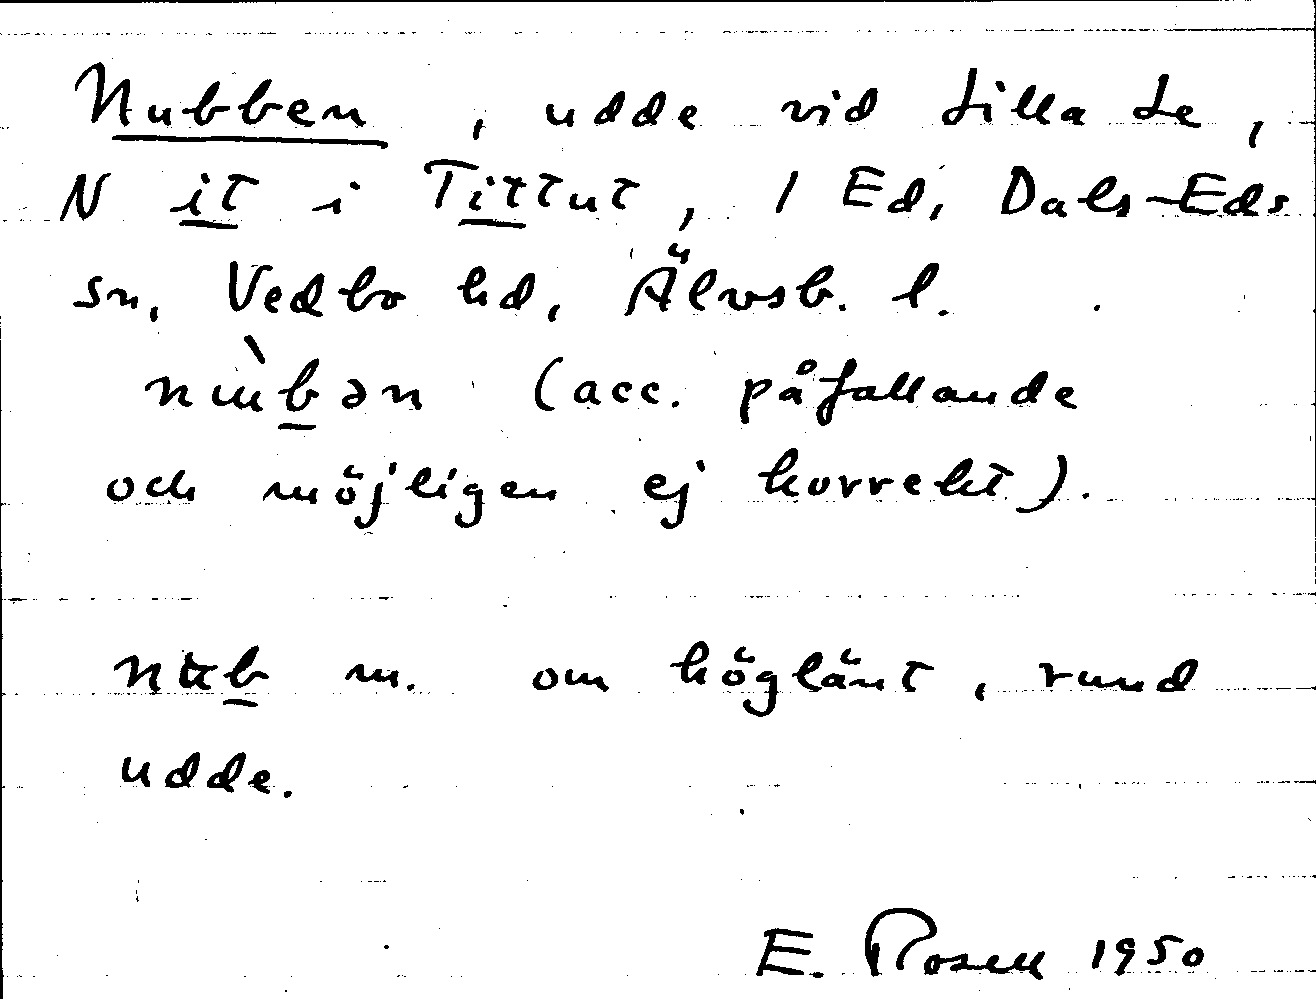 Nubben, udde vid Lilla Le,
N it i Tittut, 1 Ed, Dals-Eds
sn, Vedbo hd, Älvsb. l.
(acc. påfallande
och möjligen ej korrekt).
m. om höglänt, rund
udde.
E. Rosell 1950